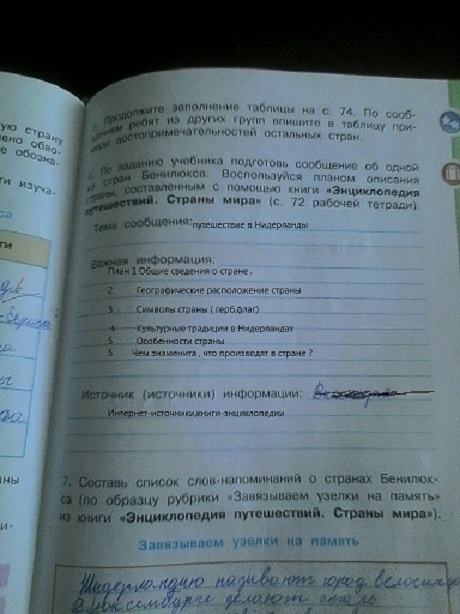 ую страну
вно обво-
е обозна-
ти изуча-
са
ти
5. Продолжите заполнение таблицы на с. 74. По сооб-
щениям ребят из других групп впишите в таблицу при-
меры достопримечательностей остальных стран.
6. По заданию учебника подготовь сообщение об одной
из стран Бенилюкса. Воспользуйся планом описания
страны, составленным с помощью книги «Энциклопедия
путешествий. Страны мира» (с. 72 рабочей тетради).
Тема сообщения: путешествие в Нидерланды
Важная информация:
План 1 Общие сведения о стране .
2 Географические расположение страны
3 Символы страны ( герб,флаг)
4 Культурные традиции в Нидерландах
5 Особенности страны
5 Чем знаменита , что производят в стране ?
Источник (источники) информации:
Интернет-источники,книги-энциклопедии
7. Составь список слов-напоминаний о странах Бенилюк-
са (по образцу рубрики «Завязываем узелки на память»
из книги «Энциклопедия путешествий. Страны мира»).
Завязываем узелки на память
Нидерландию называют город велосипедо
В Люксембурге делают сталь